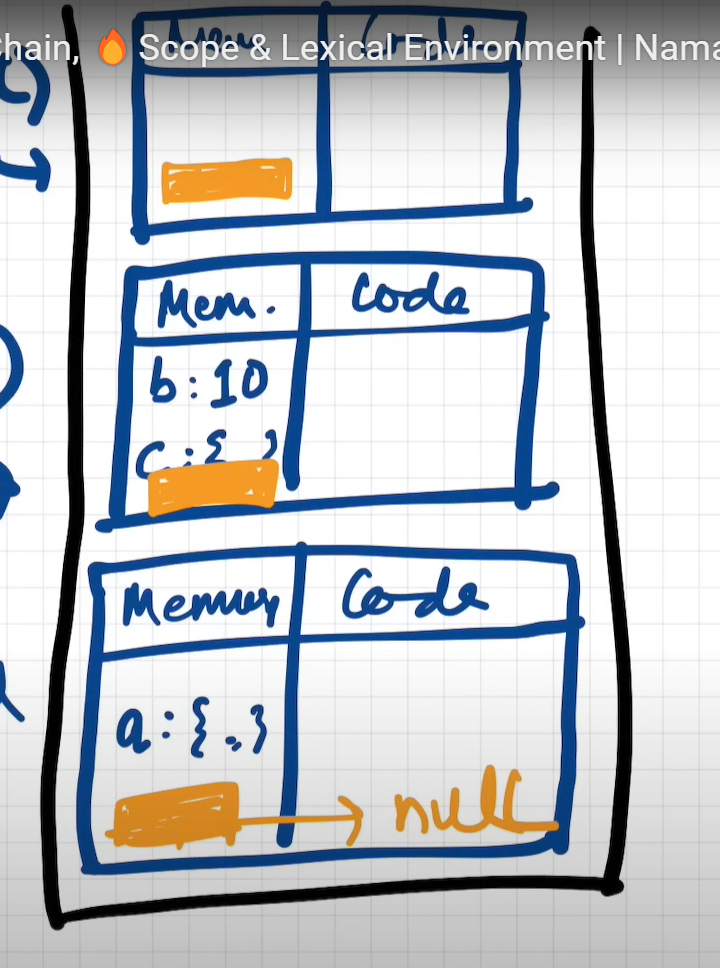 Chain, 🔥 Scope & Lexical Environment | Nama
Mem Code
Mem. Code
b : 10
c : { }
Memory Code
a : { . }
null